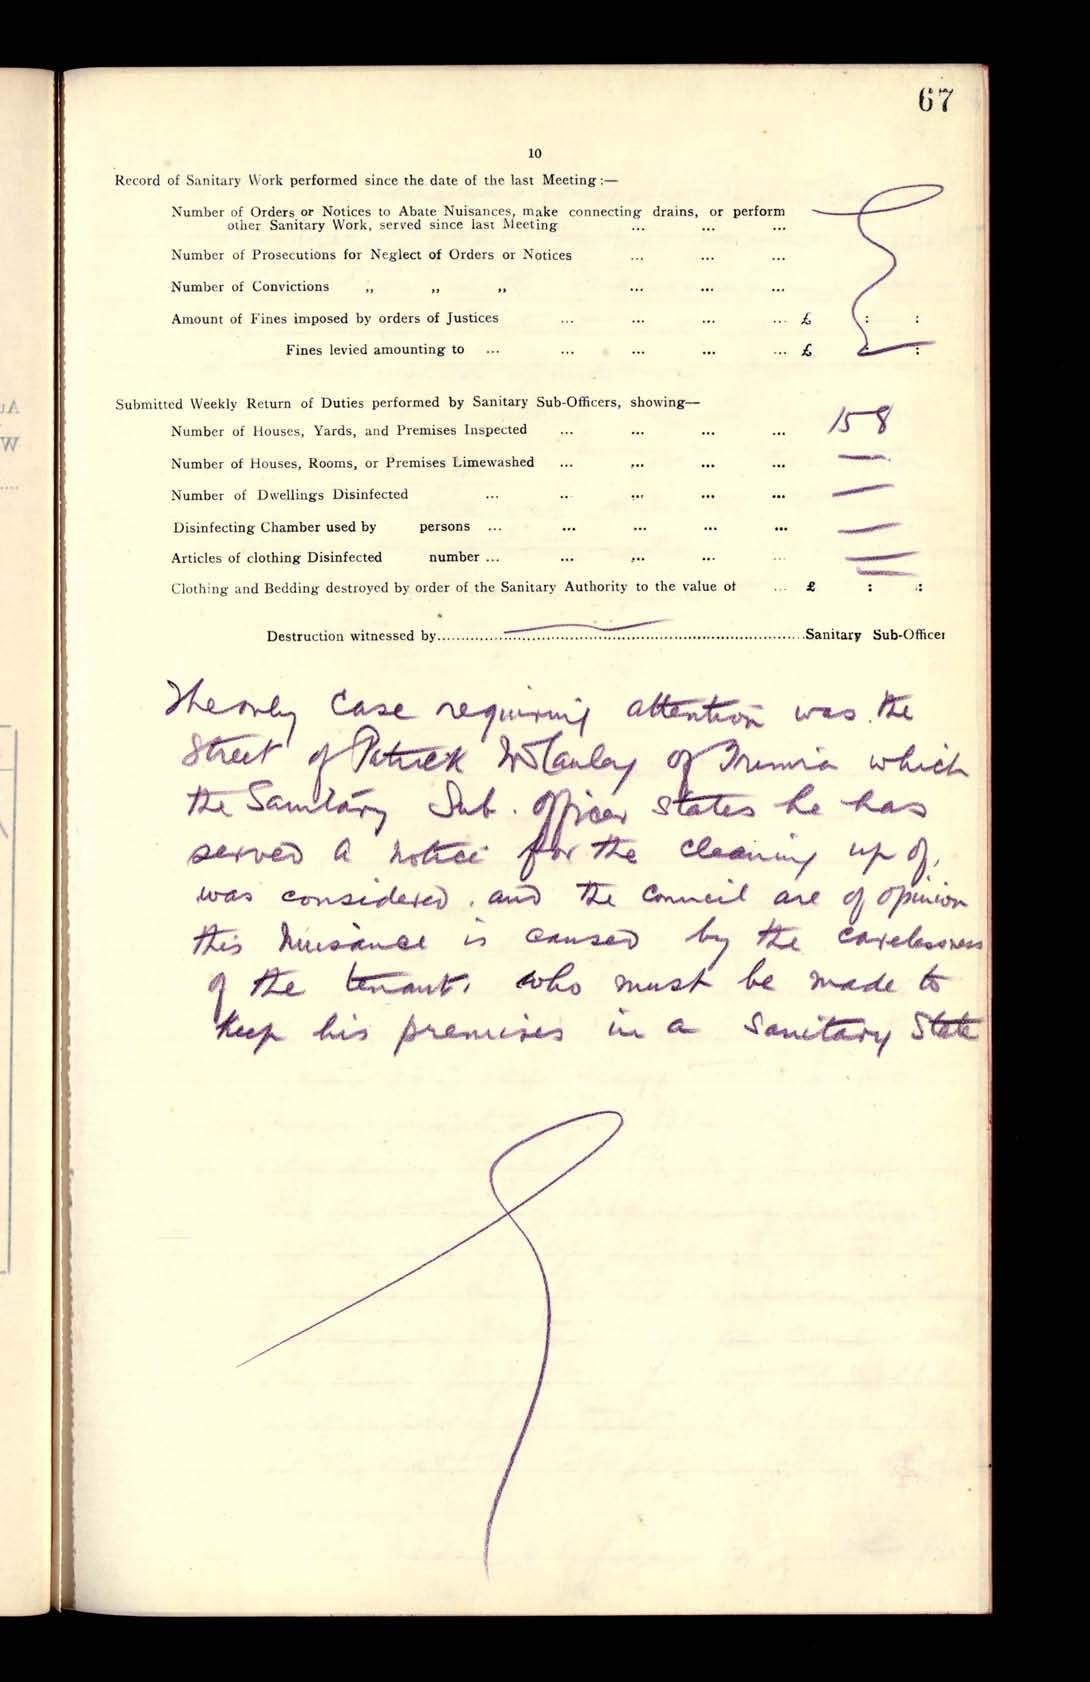 67
10
Record of Sanitary Work performed since the date of the last Meeting :—
Number of Orders or Notices to Abate Nuisances, make connecting drains, or perform
other Sanitary Work, served since last Meeting ... ... ...
Number of Prosecutions for Neglect of Orders or Notices ... ... ...
Number of Convictions ,, ,, ,, ... ... ...
Amount of Fines imposed by orders of Justices ... ... ... ... £ : :
Fines levied amounting to ... ... ... ... ... £ : :
Submitted Weekly Return of Duties performed by Sanitary Sub-Officers, showing—
Number of Houses, Yards, and Premises Inspected ... ... ... ... 158
Number of Houses, Rooms, or Premises Limewashed ... ... ... ... —
Number of Dwellings Disinfected ... ... ... ... ... —
Disinfecting Chamber used by persons ... ... ... ... ... —
Articles of clothing Disinfected number ... ... ... ... ... —
Clothing and Bedding destroyed by order of the Sanitary Authority to the value of ... £ : :
Destruction witnessed by..........Sanitary Sub-Officer
The only Case requiring attention was the
Street of Patrick of which
the Sanitary Sub. Officer states he has
served a notice for the cleaning up of,
was considered. and the Council are of opinion
this Nuisance is caused by the carelessness
of the tenant, who must be made to
keep his premises in a Sanitary State
Au
W